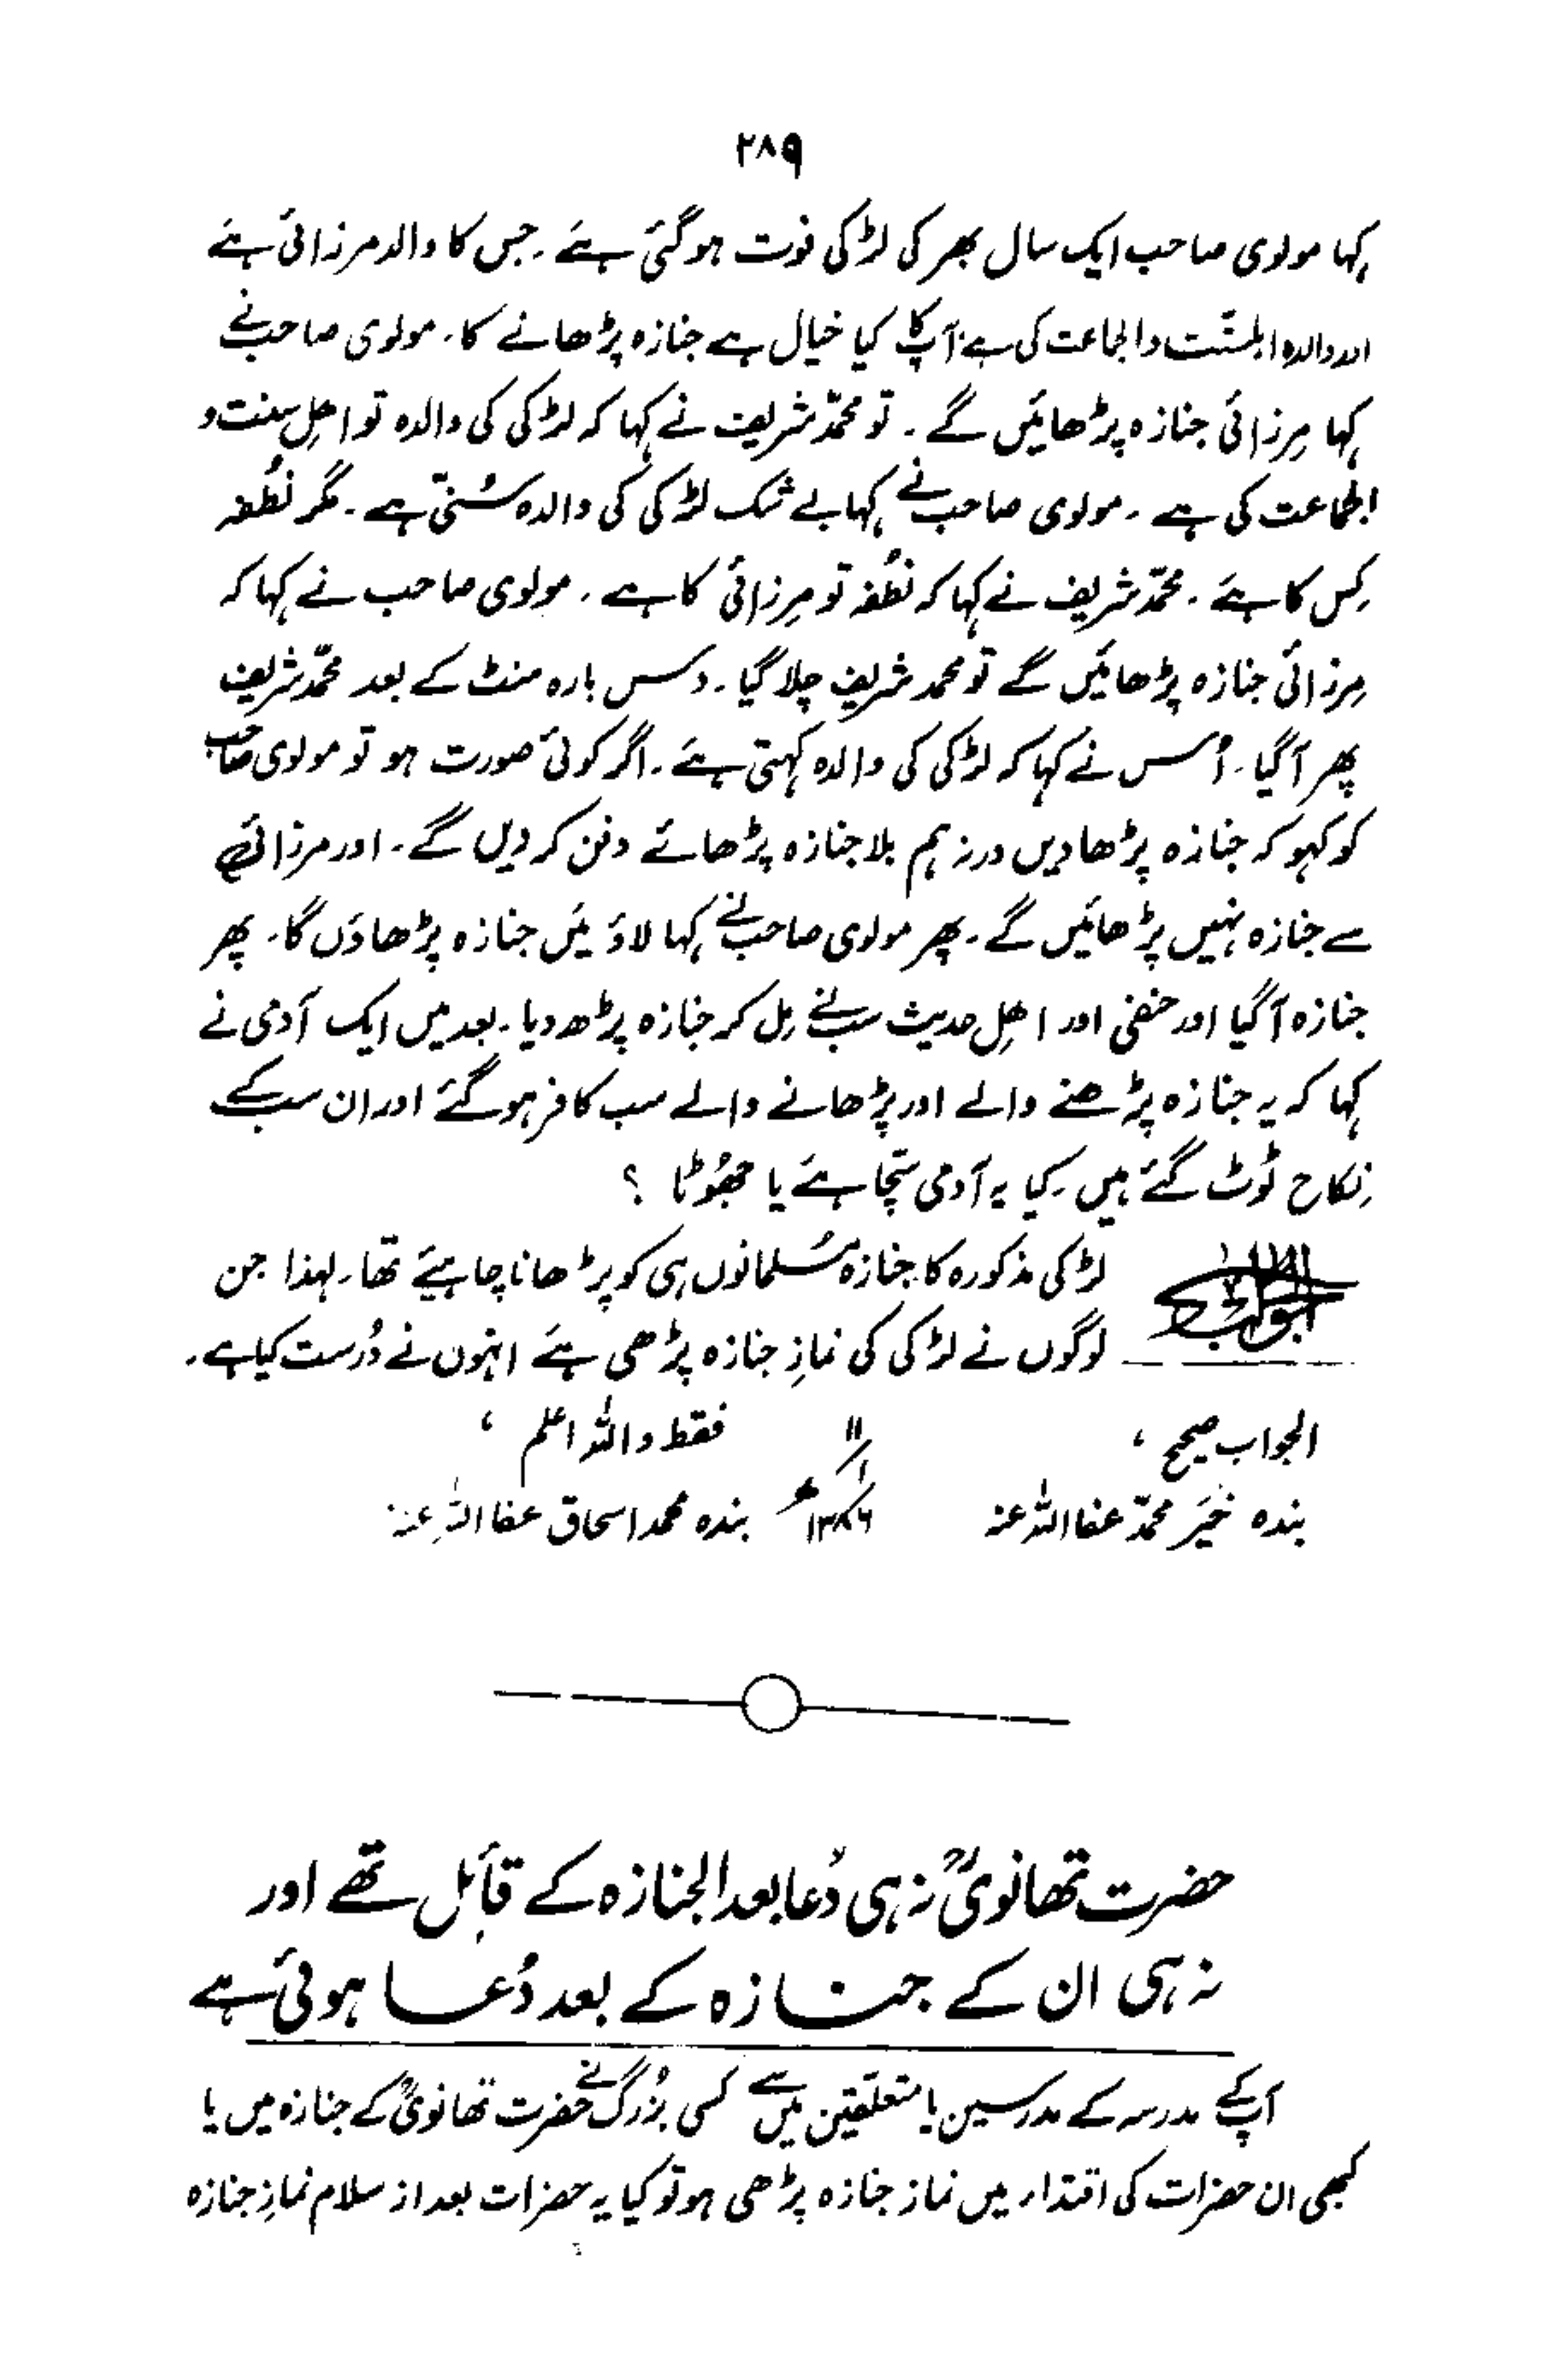 ۲۸۹
کہا مولوی صاحب ایک سال بھر کی لڑکی فوت ہوگئی ہے۔ جس کا والد مرزائی ہے
اور والدہ اہلسنّت والجاعت کی ہے آپ کا کیا خیال ہے جنازہ پڑھانے کا۔ مولوی صاحب نے
کہا مِرزائی جنازہ پڑھائیں گے۔ تو محمدّ شریف نے کہا کہ لڑکی کی والدہ تو اھلِ سنت و
الجماعت کی ہے۔ مولوی صاحب نے کہا بے شک لڑکی کی والدہ سُنّی ہے۔ مگر نُطفہ
کِس کا ہے۔ محمدّ شریف نے کہا کہ نُطفہ تو مِرزائی کا ہے۔ مولوی صاحب نے کہا کہ
مِرزائی جنازہ پڑھائیں گے تو محمد شریف چلا گیا۔ دس بارہ منٹ کے بعد محمدّ شریف
پھر آگیا۔ اُس نے کہا کہ لڑکی کی والدہ کہتی ہے۔ اگر کوئی صورت ہو تو مولوی صاحب
کو کہو کہ جنازہ پڑھا دیں ورنہ ہم بلا جنازہ پڑھائے دفن کر دیں گے۔ اور مرزائی
سے جنازہ نہیں پڑھائیں گے۔ پھر مولوی صاحب نے کہا لاؤ مَیں جنازہ پڑھاؤں گا۔ پھر
جنازہ آگیا اور حنفی اور اھلِ حدیث سب نے مِل کر جنازہ پڑھ دیا۔ بعد میں ایک آدمی نے
کہا کہ یہ جنازہ پڑھنے والے اور پڑھانے والے سب کافر ہوگئے اور ان سب کے
نِکاح ٹوٹ گئے ہیں۔ کیا یہ آدمی سچّا ہے یا جھُوٹا ؟
الجواب لڑکی مذکورہ کا جنازہ مُسلمانوں ہی کو پڑھانا چاہیئے تھا۔ لہٰذا جن
لوگوں نے لڑکی کی نمازِ جنازہ پڑھی ہے انہوں نے دُرست کیا ہے۔
الجواب صحیح ، ۱۱ فقط واللہ اعلم ،
بندہ خَیر محمدّ عفا اللہ عنہ ۱/۱۳۸۶ھ بندہ محمد اسحاق عفا اللہ عنہ
حضرت تھانویؒ نہ ہی دُعا بعد الجنازہ کے قائل تھے اور
نہ ہی ان کے جنازہ کے بعد دُعا ہوئی ہے
آپ کے مدرسہ کے مدرسین یا متعلقین میں سے کسی بزُرگ نے حضرت تھانویؒ کے جنازہ میں یا
کبھی ان حضرات کی اقتداء میں نماز جنازہ پڑھی ہو تو کیا یہ حضرات بعد از سلام نمازِ جنازہ